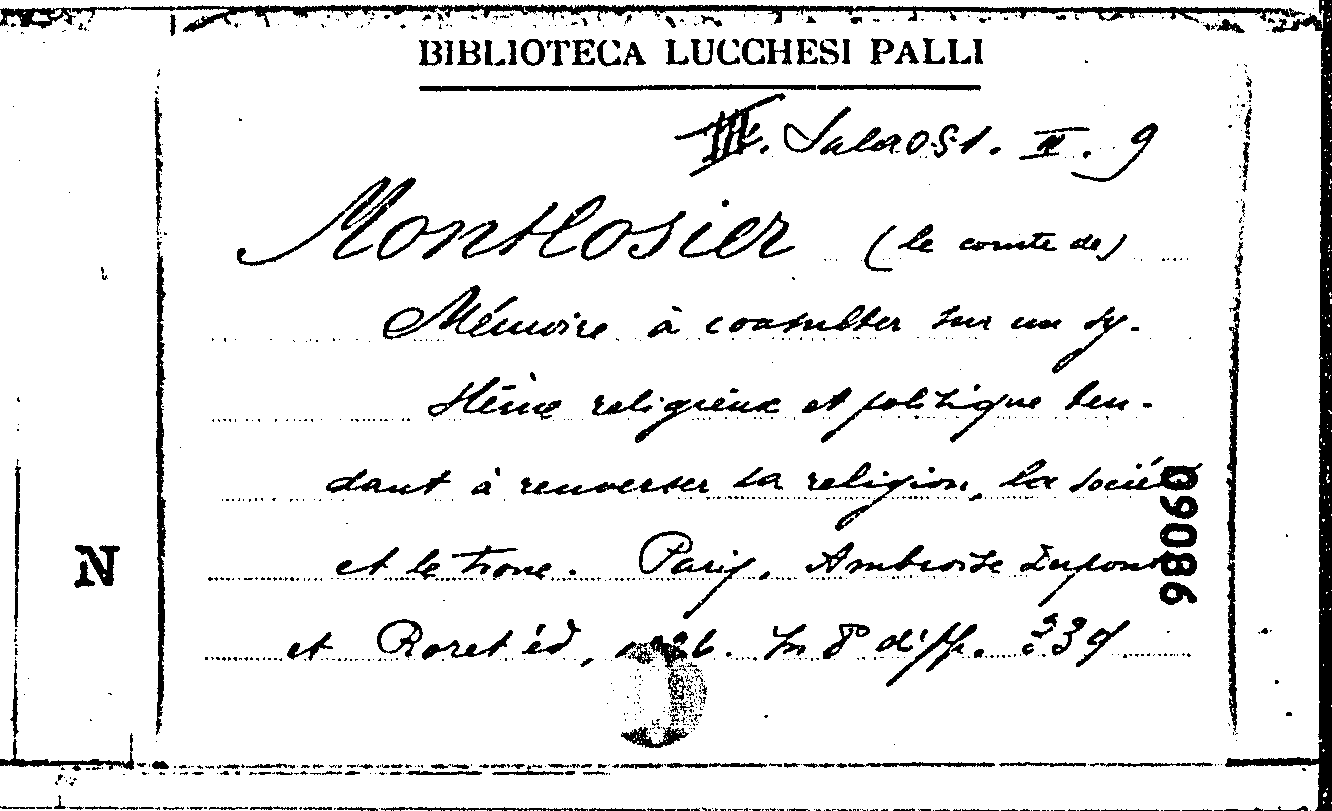 BIBLIOTECA LUCCHESI PALLI
III. Sala 051. II. 9
Montlosier (le comte de)
Mémoire à consulter sur un sy-
stème religieux et politique ten-
dant à renverser la religion, la société
et le trone. Paris, Ambroise Dupont
et Roret éd, 1826. In 8° di pp. 339
N
98060